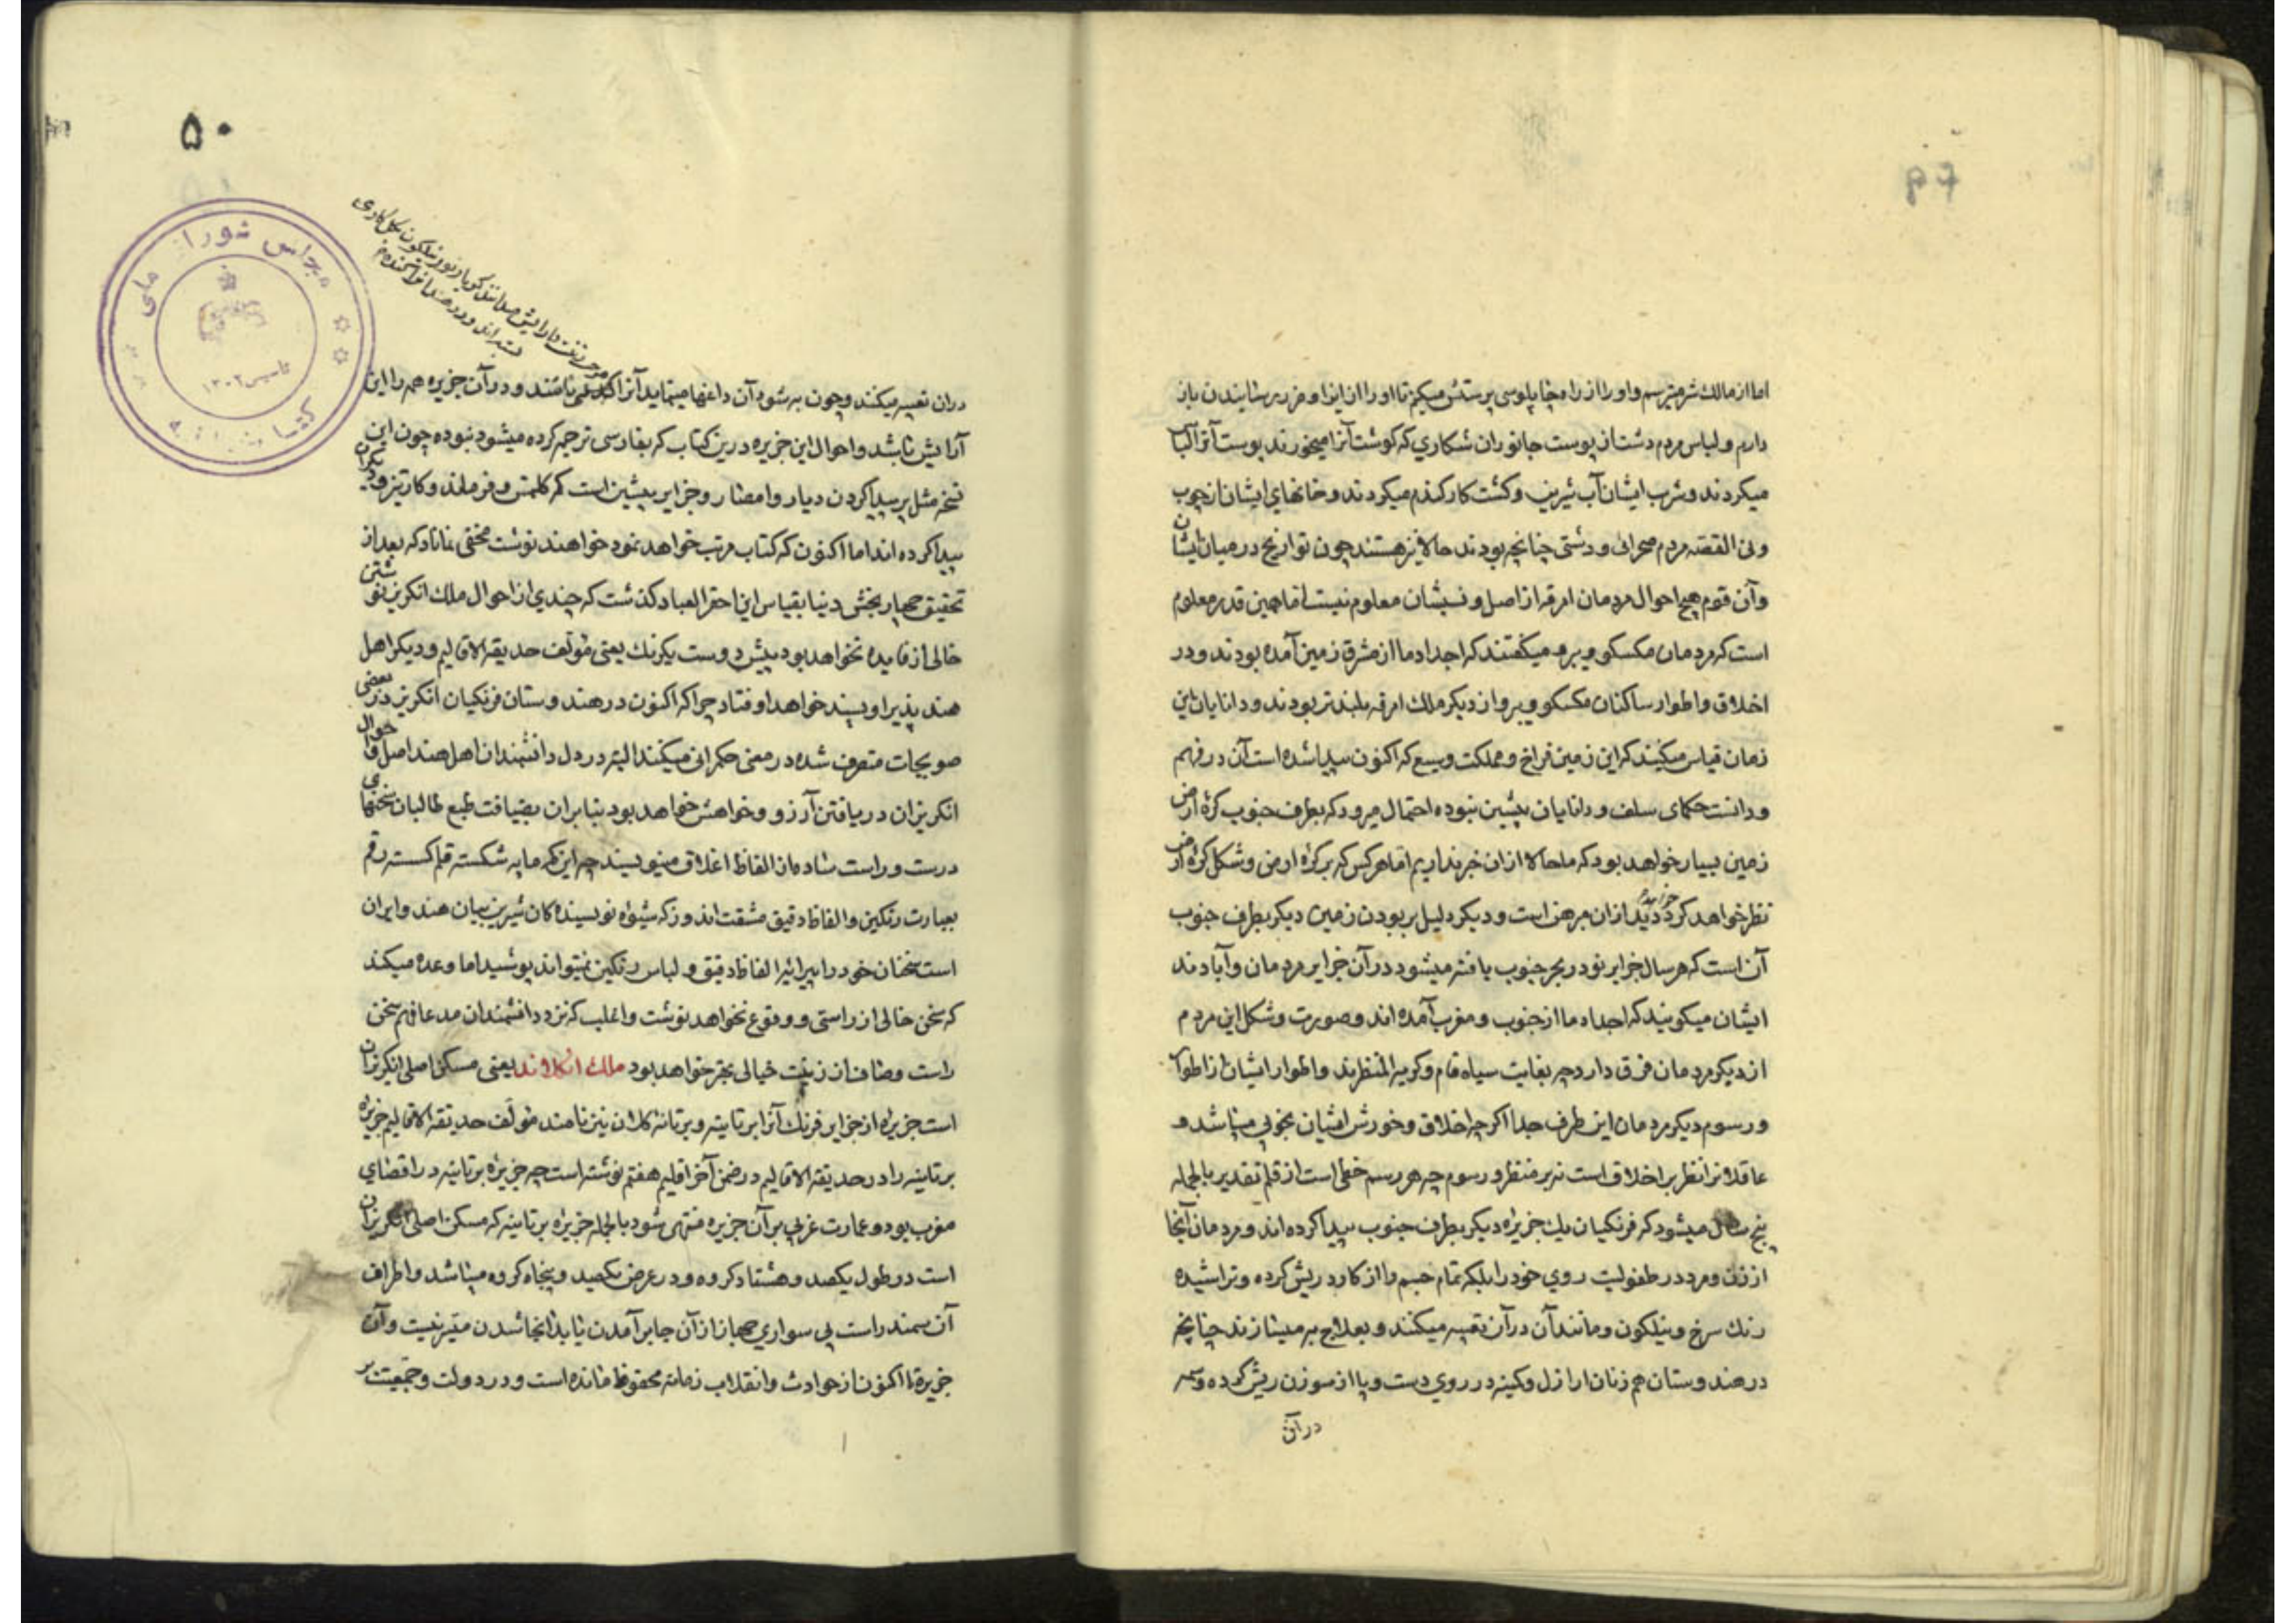 اما از مالک شر میترسم و او را از راه چاپلوسی پرستش میکنم تا او را از ایذا و ضرر رسانیدن باز
دارم و لباس مردم دشت از پوست جانوران شکاری که گوشت آنرا میخورند پوست آنرا لباس
میکردند و شرب ایشان آب شیرین و کشت کار گندم میکردند و خانهای ایشان از چوب
ونی القصه مردم صحرائی و دشتی چنانچه بودند حالا نیز هستند چون تواریخ در میان ایشان
و آن قوم هیچ احوال مردمان امرقه از اصل و نسبشان معلوم نیست اما همین قدر معلوم
است که مردمان مکسکو و برو میگفتند که اجداد ما از مشرق زمین آمده بودند و در
اخلاق و اطوار ساکنان مکسکو و برو از دیکر ملک امرقه بلندتر بودند و دانایان این
زمان قیاس میکنند که این زمین فراخ و مملکت وسیع که اکنون پیدا شده است آن در فهم
و دانست حکمای سلف و دانایان پیشین نبوده احتمال میرود که بطرف جنوب کرهٔ ارض
زمین بسیار خواهد بود که ما حالا ازان خبر نداریم اما هر کس که بر کرهٔ ارض و شکل کرهٔ ارض
نظر خواهد کرد ازان مبرهن است و دیکر دلیل بر بودن زمین دیکر بطرف جنوب
آن است که هر سال جزایر نو در بحر جنوب یافته میشود در آن جزایر مردمان و آبادند
ایشان میکویند که اجداد ما از جنوب و مغرب آمده اند و صورت و شکل این مردم
از دیکر مردمان فرق دارد چه بغایت سیاه فام و کریه المنظرند و اطوار ایشان از اطوار
و رسوم دیکر مردمان این طرف جدا اکرچه اخلاق و خورش ایشان بخوبی میباشد و
عاقلانرا نظر بر اخلاق است نه بر منظر و رسوم چه هر رسم خطی است از قلم تقدیر بالجمله
پنج سال میشود که فرنکیان یک جزیره دیکر بطرف جنوب پیدا کرده اند و مردمان آنجا
از زن و مرد در طفولیت روی خود را بلکه تمام جسم را از کارد ریش کرده و تراشیده
رنک سرخ و نیلکون و مانند آن در آن تعبیه میکنند و بعلاج به میسازند چنانچه
در هندوستان هم زنان اراذل و کمینه در روی دست و پا از سوزن ریش کرده وسمه
در آن
۵۰
مجلس شورای ملی
تاسیس ۱۳۰۲
دران تعبیه میکنند و چون به شود آن داغها مینماید آنرا باشند و در آن جزیره همه را این
آرایش باشد و احوال این جزیره درین کتاب که بفارسی ترجمه کرده میشود نبوده چون این
نسخه مثل بر پیدا کردن دیار و امصار و جزایر پیشین است که کلمتس و فرملند و کارتیز و دیکران
پیدا کرده اند اما اکنون که کتاب مرتب خواهد نمود خواهند نوشت مخفی نماناد که بعد از
تحقیق چهار بخش دنیا بقیاس این احقر العباد کذشت که چندی از احوال ملک انکریز نوشتن
خالی از فایده نخواهد بود پیش دوست یکرنک یعنی مؤلف حدیقة الاقالیم و دیکر اهل
هند پذیرا و پسند خواهد اوفتاد چرا که اکنون در هندوستان فرنکیان انکریز در بعضی
صوبجات متصرف شده در معنی حکمرانی میکنند البته در دل دانشمندان اهل هند اصل و احوال
انکریزان دریافتن آرزو و خواهش خواهد بود بنابران بضیافت طبع طالبان سخنهای
درست و راست ساده از الفاظ اغلاق مینویسند چه این کم مایه شکسته قلم کسته رقم
بعبارت رنکین و الفاظ دقیق مشقت اندوز که شیوه نویسنده کان شیرین بیان هند و ایران
است سخنان خود را بپیرایهٔ الفاظ دقیق و لباس رنکین نمیتواند پوشید اما وعده میکند
که سخن خالی از راستی و وقوع نخواهد نوشت و اغلب که نزد دانشمندان مدعا فهم سخن
راست و صاف از زینت خیالی بهتر خواهد بود ملک انکلاند یعنی مسکن اصلی انکریزان
است جزیره از جزایر فرنک آنرا برتانیه و برتانیه کلان نیز نامند مؤلف حدیقة الاقالیم جزیره
برتانیه را در حدیقة الاقالیم در ضمن آخر اقلیم هفتم نوشته است چه جزیره برتانیه در اقصای
مغرب بود و عمارت غربی بر آن جزیره منتهی شود بالجمله جزیره برتانیه که مسکن اصلی انکریزان
است در طول یکصد و هشتاد کروه و در عرض یکصد و پنجاه کروه میباشد و اطراف
آن سمندر است بی سواری جهاز از آن جا بر آمدن یا بدانجا شدن میسر نیست و آن
جزیره تا اکنون از حوادث و انقلاب زمانه محفوظ مانده است و در دولت و جمعیت بر